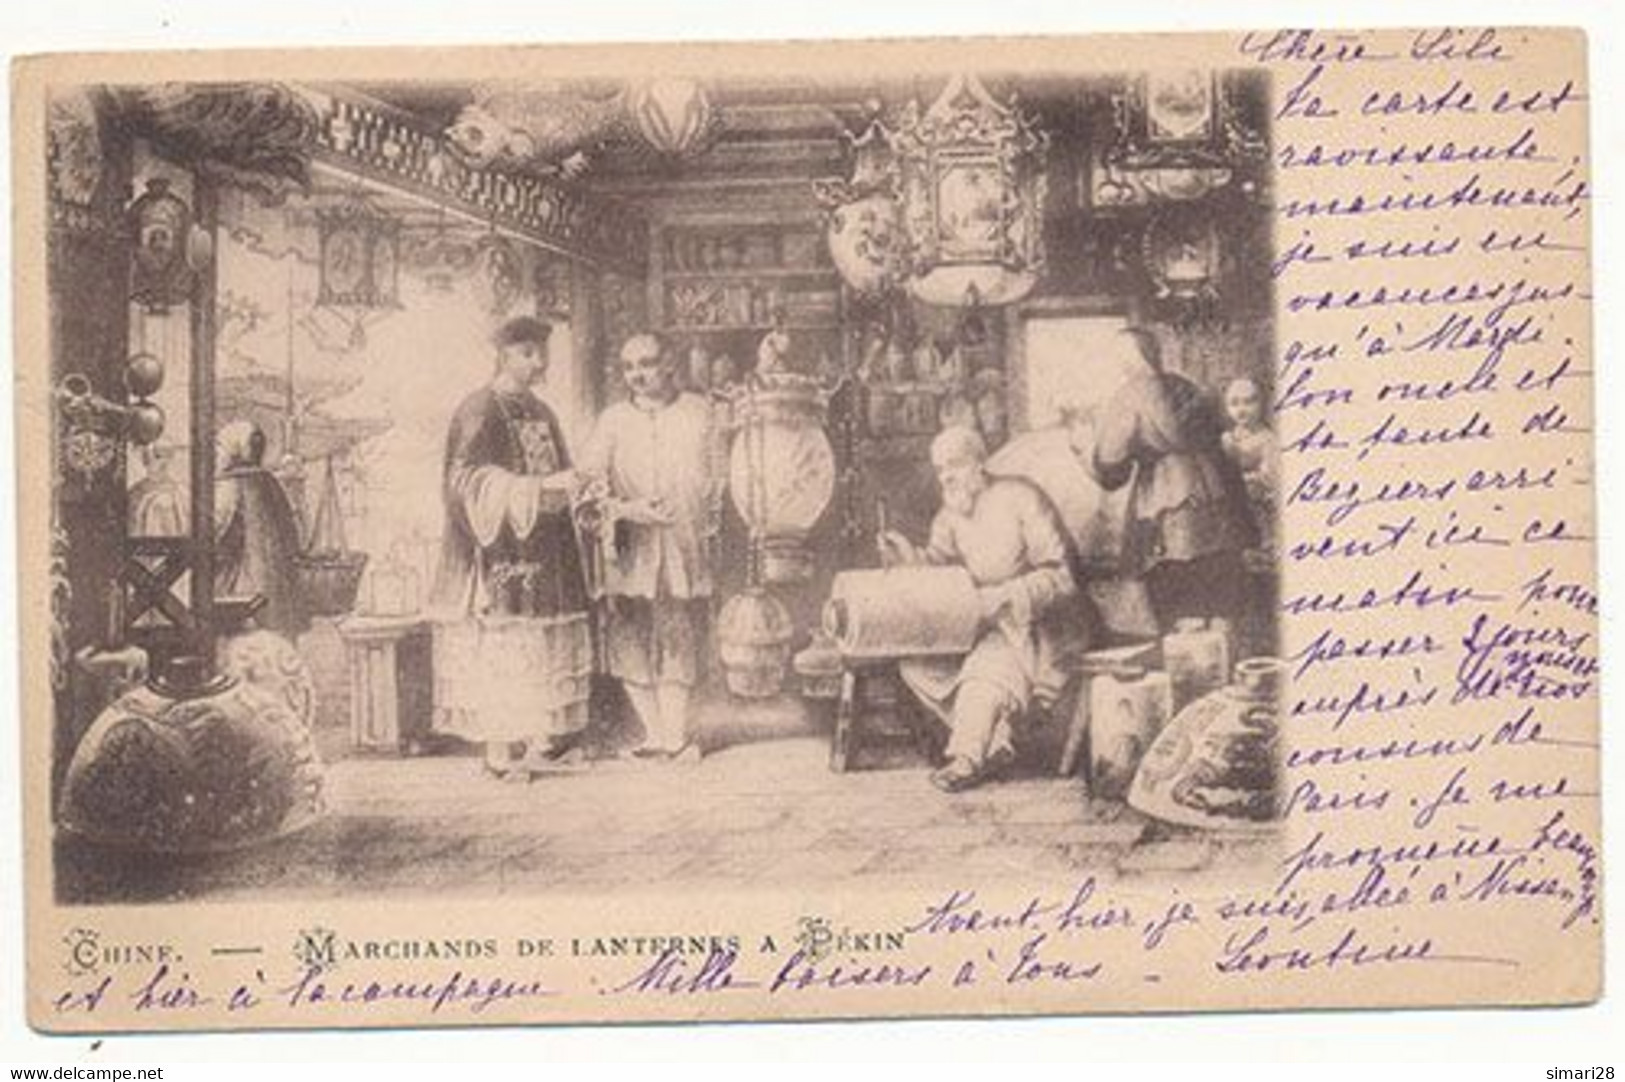 Chère Lili
ta carte est
ravissante,
maintenant,
je suis en
vacances jus-
qu'à Mardi.
Ton oncle et
ta tante de
Beziers arri-
vent ici ce
matin pour
passer 2 jours
auprès de nos
cousins de
Paris. Je me
promène beaucoup.
Avant-hier, je suis allée à Nissan
CHINE. — MARCHANDS DE LANTERNES A PÉKIN
et hier à la campagne. Mille baisers à Tous — Leontine
https://www.delcampe.net
simari28